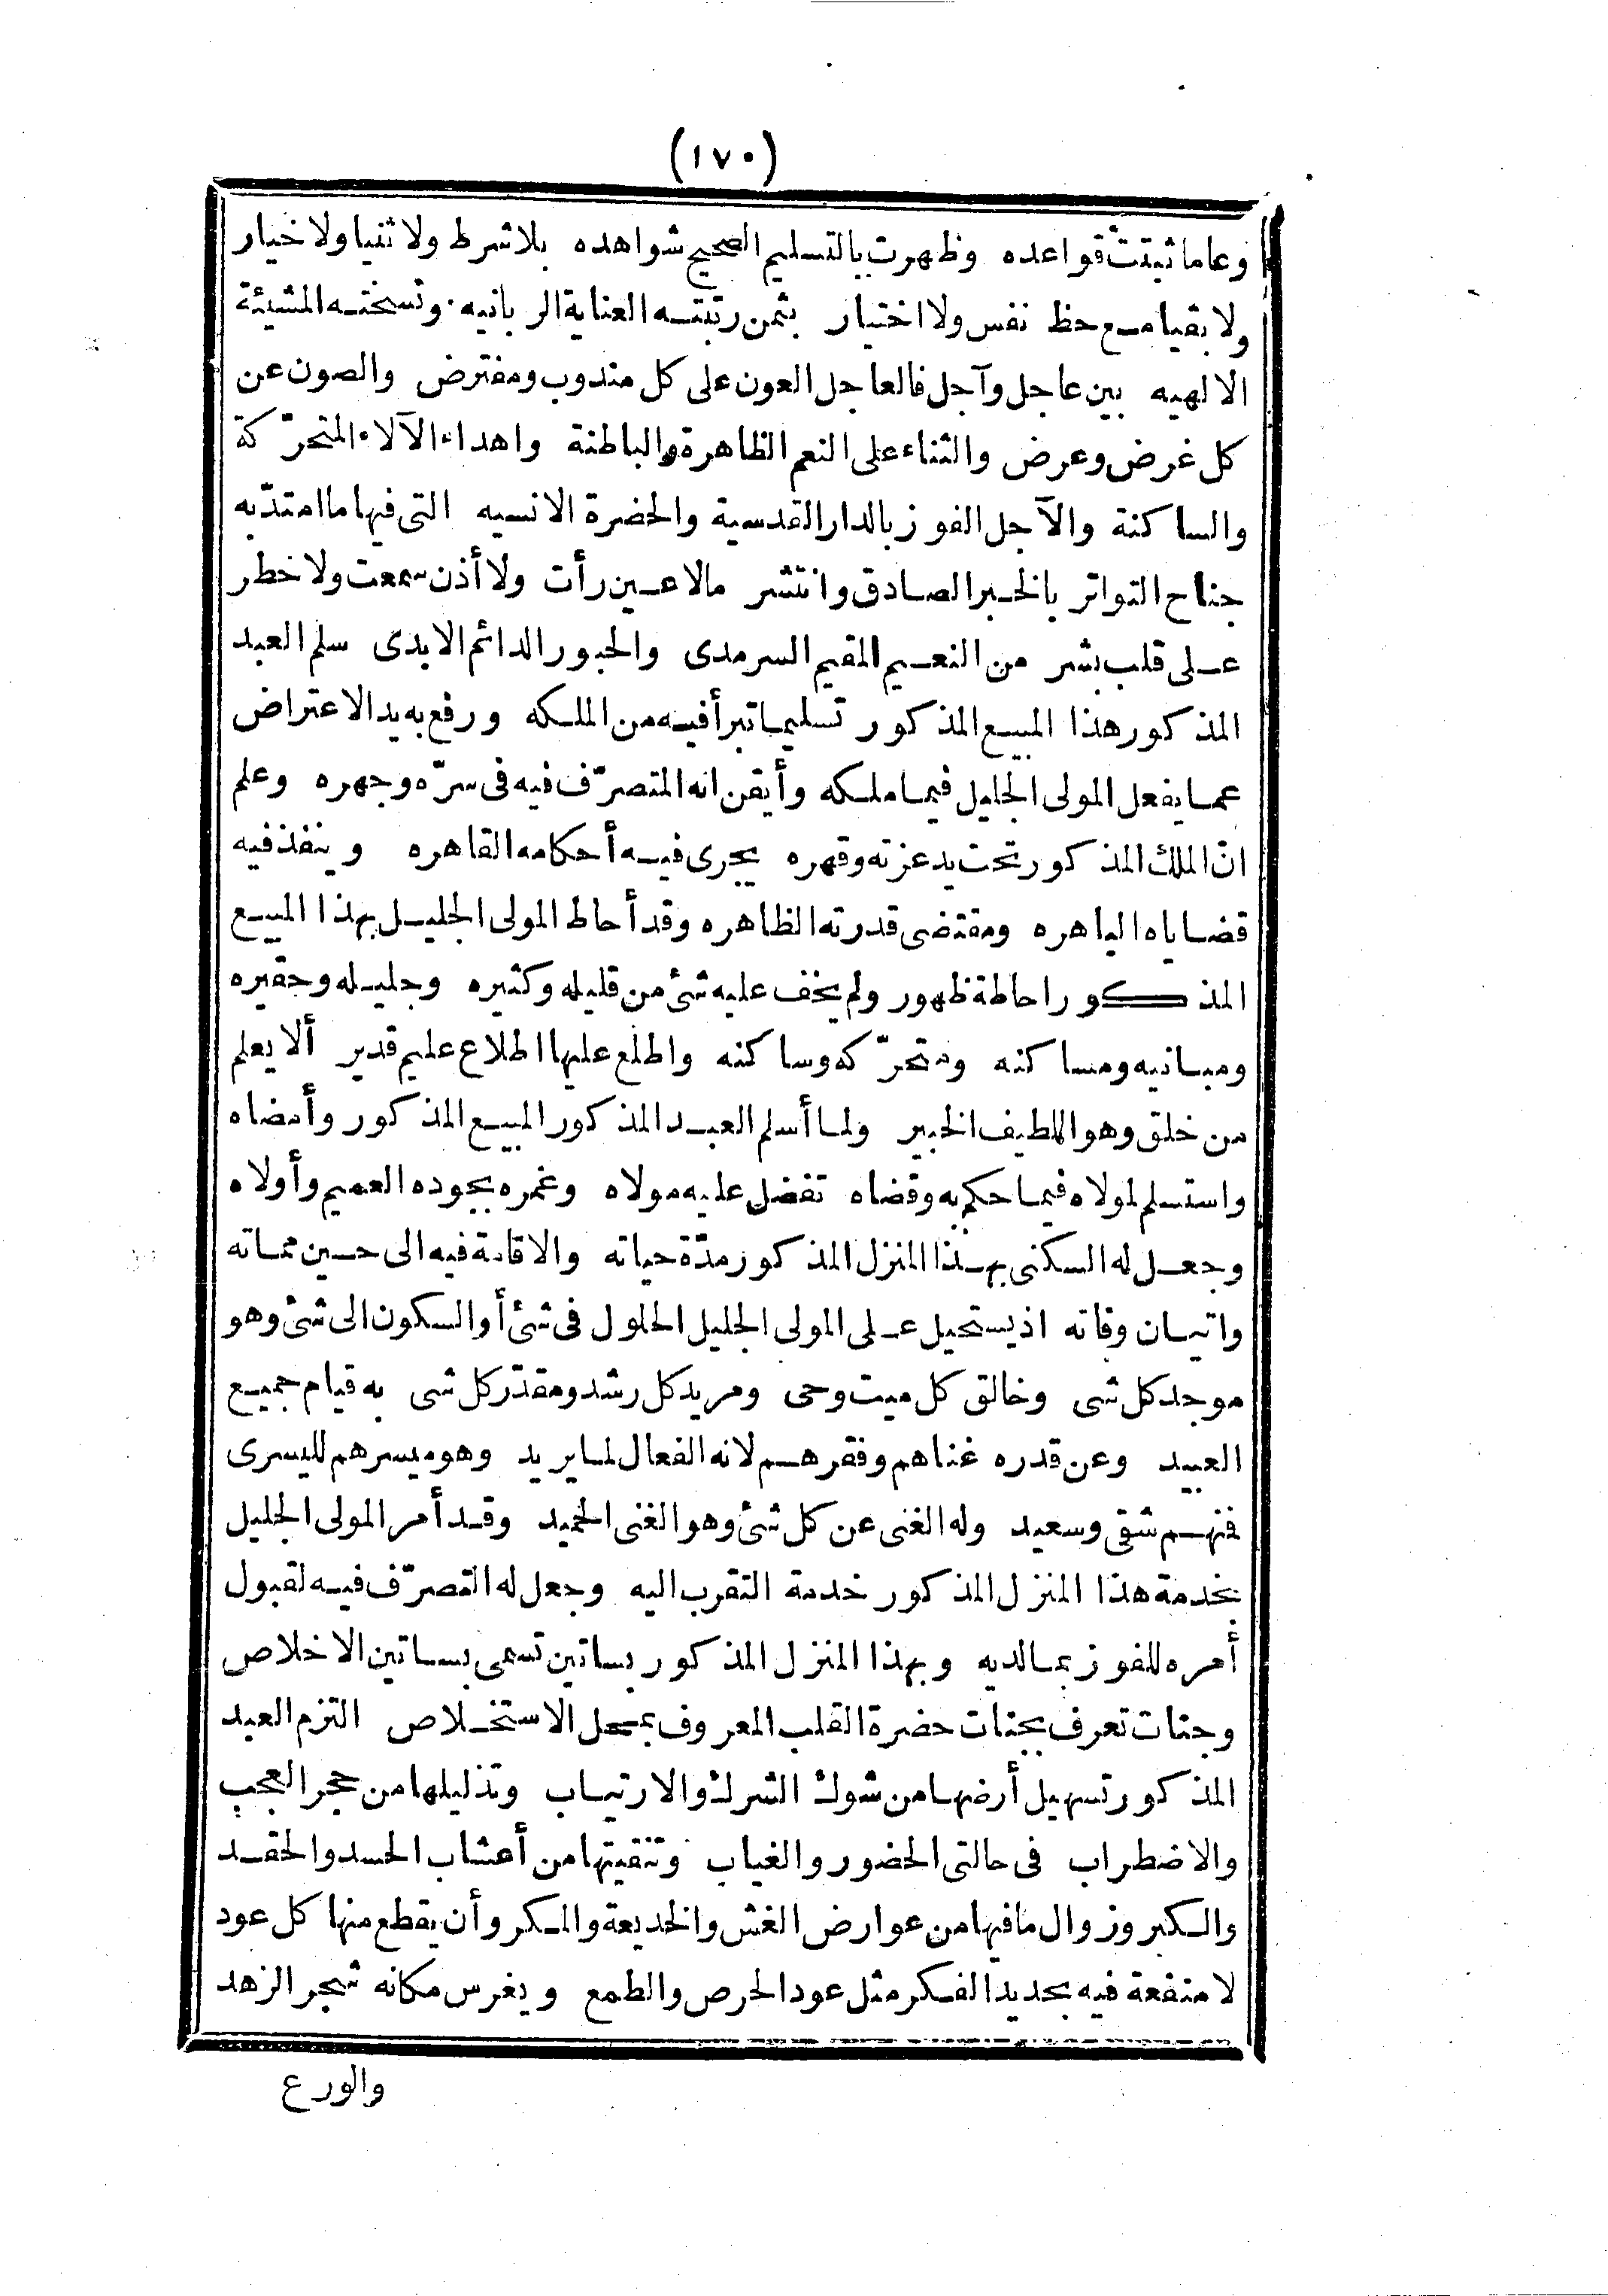 (١٧٠)
وعاما ثبتت قواعده وظهرت بالتسليم الصحيح شواهده بلا شرط ولا ثنيا ولا خيار
ولا بقيا مع حظ نفس ولا اختيار بثمن رتبته العناية الربانيه وسخته المشيئة
الالهيه بين عاجل وآجل فالعاجل العون على كل مندوب ومفترض والصون عن
كل غرض وعرض والثناء على النعم الظاهرة والباطنة واهداء الآلاء المتحرّكة
والساكنة والآجل الفوز بالدار القدسية والحضرة الانسيه التى فيها ما امتدّ به
جناح التواتر بالخبر الصادق وانتشر مالا عين رأت ولا أذن سمعت ولا خطر
على قلب بشر من النعيم المقيم السرمدى والحبور الدائم الابدى سلم العبد
المذكور هذا المبيع المذكور تسليما تبرأ فيه من الملكه ورفع به يد الاعتراض
عما يفعل المولى الجليل فيما ملكه وأيقن انه المتصرّف فيه فى سرّه وجهره وعلم
انّ الملك المذكور تحت يد عزته وقهره يجرى فيه أحكامه القاهره وينفذ فيه
قضاياه الباهره ومقتضى قدرته الظاهره وقد أحاط المولى الجليل بهذا المبيع
المذكور احاطة ظهور ولم يخف عليه شئ من قليله وكثيره وجليله وحقيره
ومبانيه ومساكنه ومتحرّكه وساكنه واطلع عليها اطلاع عليم قدير ألا يعلم
من خلق وهو اللطيف الخبير ولما أسلم العبد المذكور المبيع المذكور وأمضاه
واستسلم لمولاه فيما حكم به وقضاه تفضل عليه مولاه وغمره بجوده العميم وأولاه
وجعل له السكنى بهذا المنزل المذكور مدّة حياته والاقامة فيه الى حين مماته
واتيان وفاته اذ يستحيل على المولى الجليل الحلول فى شئ أو السكون الى شئ وهو
موجد كل شى وخالق كل ميت وحى ومريد كل رشد ومقدّر كل شى به قيام جميع
العبيد وعن قدره غناهم وفقرهم لانه الفعال لما يريد وهو ميسرهم لليسرى
فمنهم شقى وسعيد وله الغنى عن كل شئ وهو الغنى الحميد وقد أمر المولى الجليل
بخدمة هذا المنزل المذكور خدمة التقرب اليه وجعل له التصرّف فيه لقبول
أمره للفوز بما لديه وبهذا المنزل المذكور بساتين تسمى بساتين الاخلاص
وجنات تعرف بجنات حضرة القلب المعروف بمحل الاستخلاص التزم العبد
المذكور تسهيل أرضها من شوك الشرك والارتياب وتذليلها من حجر العجب
والاضطراب فى حالتى الحضور والغياب وتنقيتها من أعشاب الحسد والحقد
والكبر وزوال ما فيها من عوارض الغش والخديعة والمكر وأن يقطع منها كل عود
لا منفعة فيه بحديد الفكر مثل عود الحرص والطمع ويغرس مكانه شجر الزهد
والورع